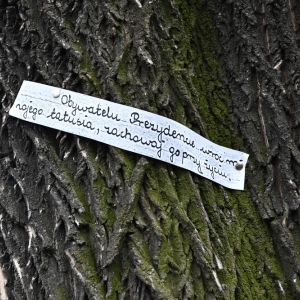 Obywatelu Prezydencie wróć mi
mojego tatusia, zachowaj go przy życiu.